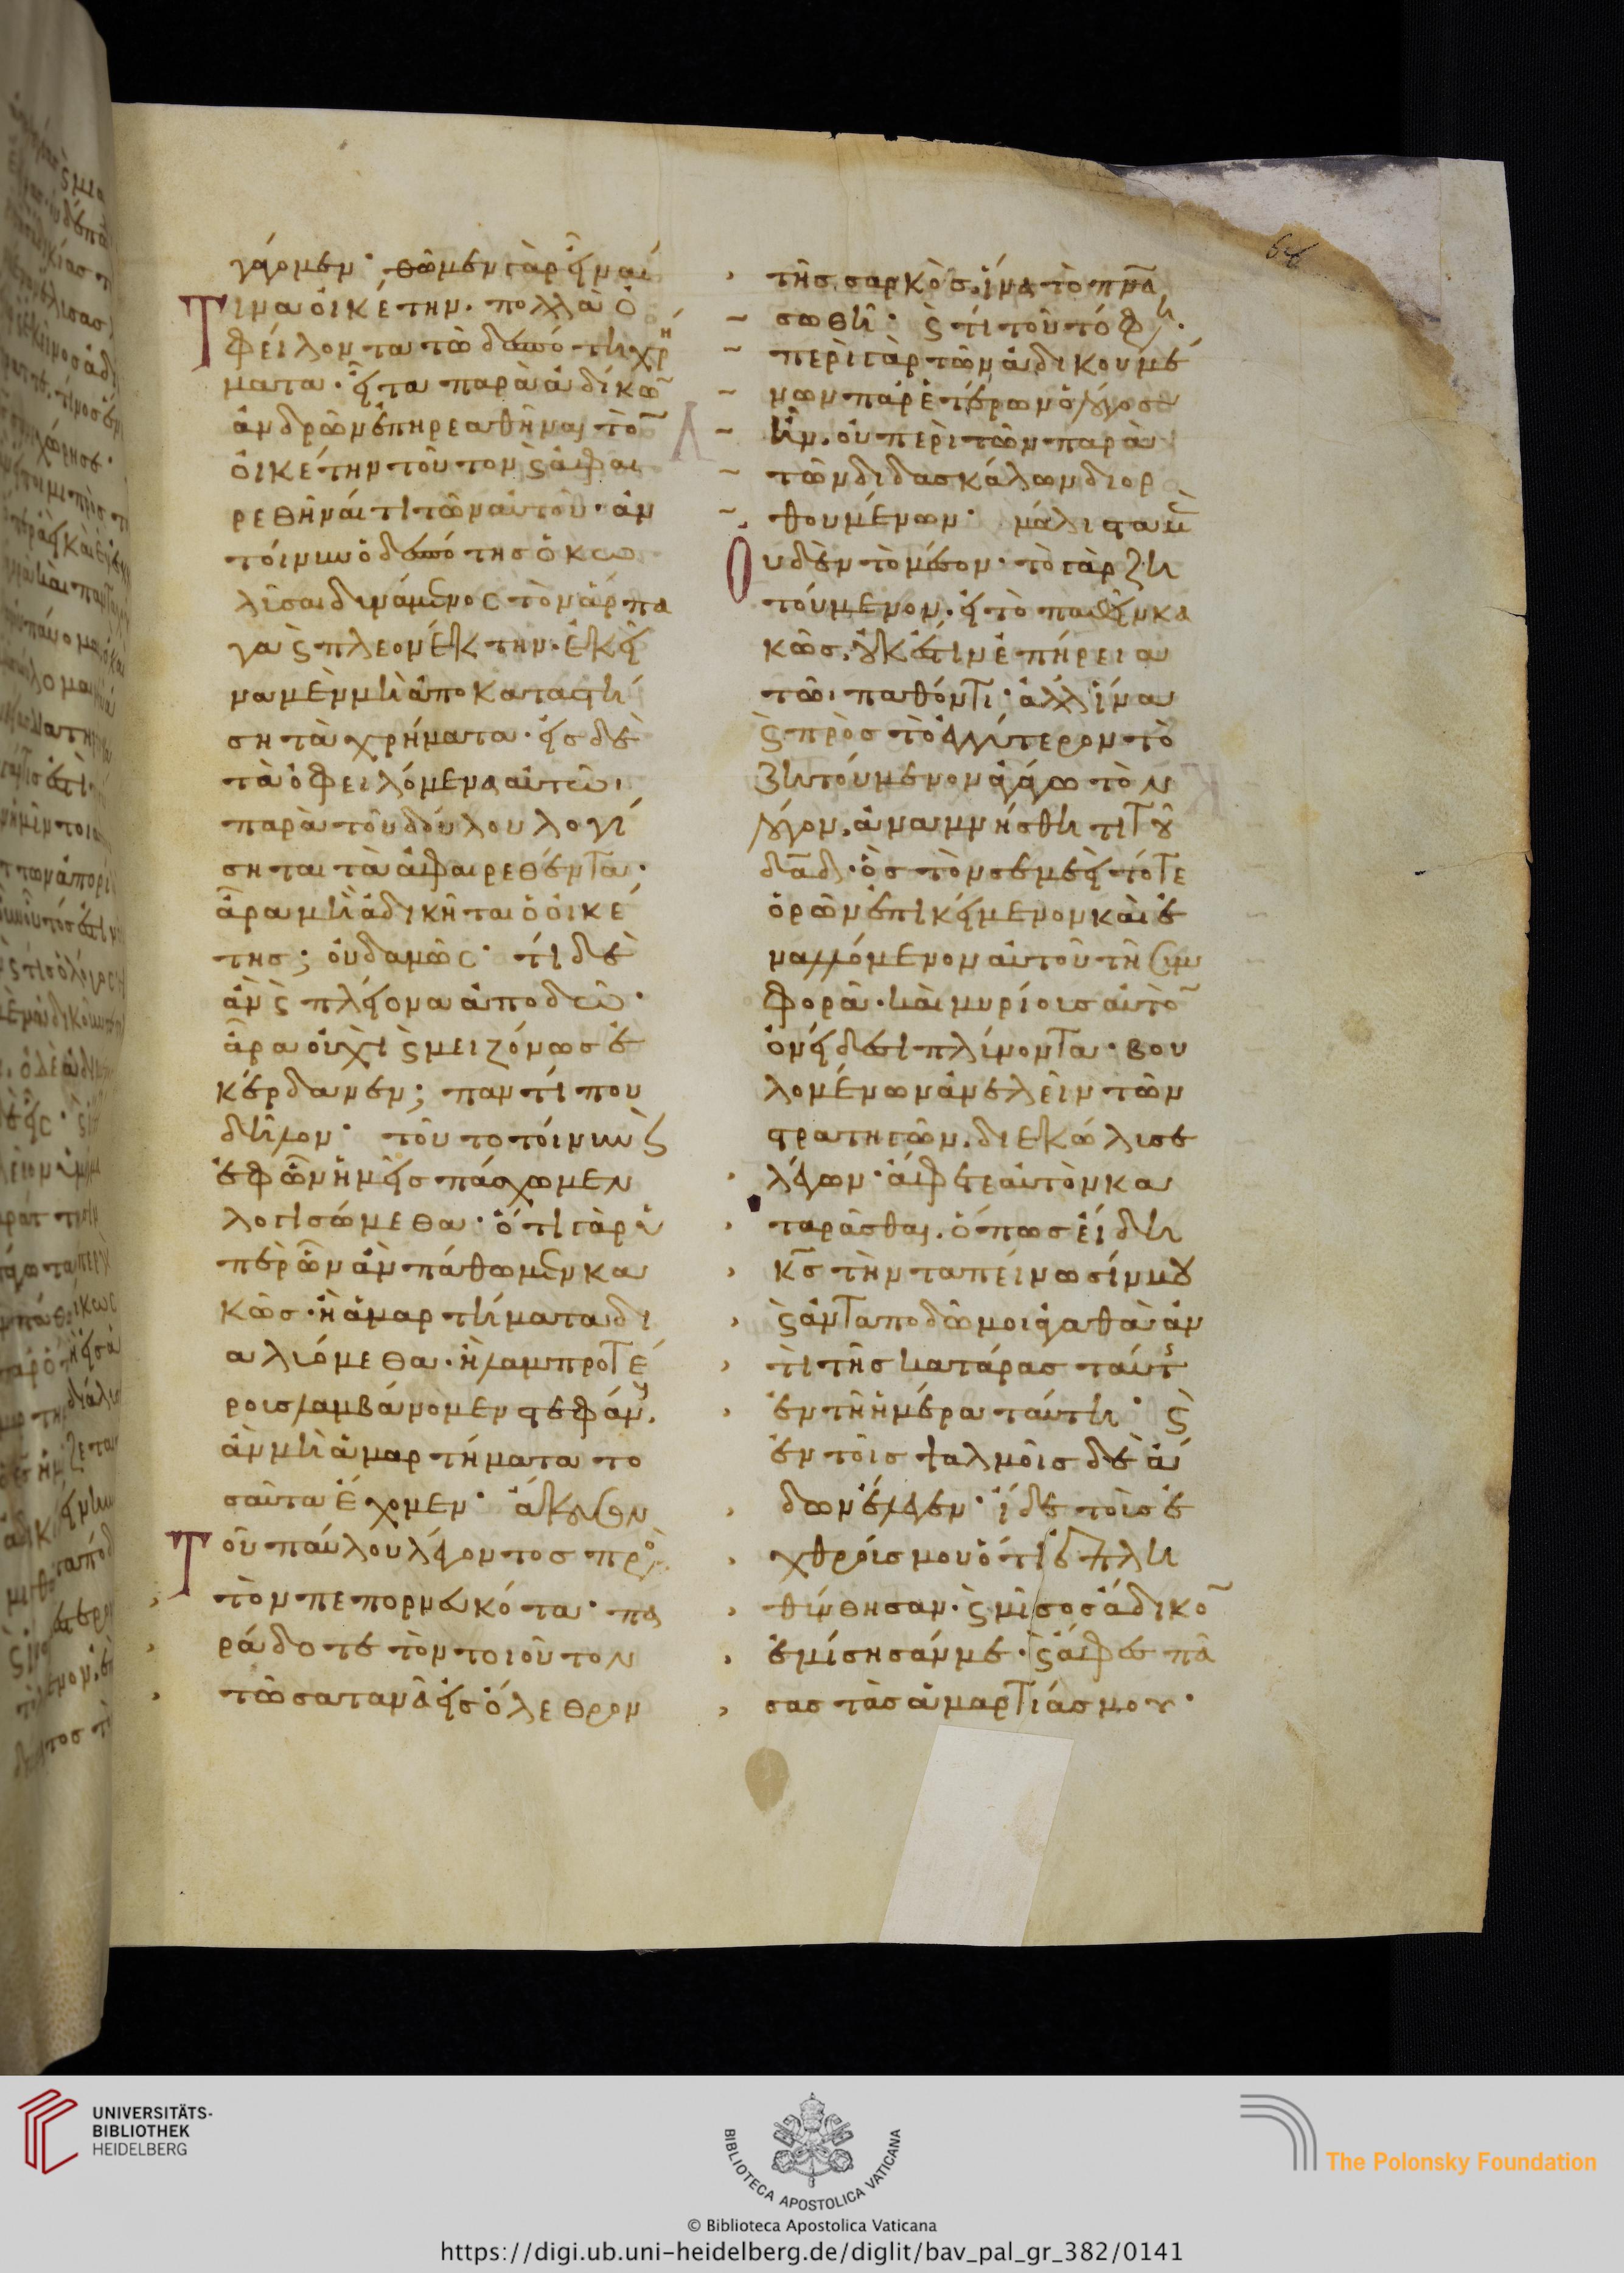 γάγομεν· θῶμεν γὰρ εἶναί
τινα οἰκέτην· πολλὰ ὀ
φείλοντα τῶ δεσπότη χρή
ματα· εἶτα παρὰ ἀδίκων
ἀνδρῶν ἐπηρεασθῆναι τὸν
οἰκέτην τοῦτον ϗ ἀφαι
ρεθῆναί τι τῶν αὐτοῦ· ἂν
τοίνυν ὁ δεσπότης ὁ κω
λῦσαι δυνάμενος τὸν ἅρπα
γα ϗ πλεονέκτην· ἐκεῖ
να μὲν μὴ ἀποκαταστή
ση τὰ χρήματα· εἰς δὲ
τὰ ὀφειλόμενα αὐτῶι
παρὰ τοῦ δούλου λογί
σηται τὰ ἀφαιρεθέντα·
ἆρα μὴ ἀδικῆται ὁ οἰκέ
της; οὐδαμῶς· τί δὲ
ἂν ϗ πλείονα ἀποδῶ·
ἆρα οὐχὶ ϗ μειζόνως ἐ
κέρδανεν; παντί που
δῆλον· τοῦτο τοίνυν ϗ
ἐφ' ὧν ἡμεῖς πάσχωμεν
λογισώμεθα· ὅτι γὰρ ὑ
πὲρ ὧν ἂν πάθωμεν κα
κῶς· ἢ ἁμαρτήματα δι
αλυόμεθα· ἢ λαμπροτέ
ροις λαμβάνομεν στεφάν.
ἂν μὴ ἁμαρτήματα το
σαῦτα ἔχομεν· ἄκουσον
Τοῦ παύλου λέγοντος πρὸς
τὸν πεπορνευκότα· πα
ράδοτε τὸν τοιοῦτον
τῶ σατανᾶ εἰς ὄλεθρον
τῆς σαρκὸς, ἵνα τὸ πνα
σωθῆ· ϗ τί τοῦτό φη.
περὶ γὰρ τῶν ἀδικουμέ
νων παρ' ἑτέρων ὁ λόγος
ἦν. οὐ περὶ τῶν παρὰ
τῶν διδασκάλων διορ
θουμένων· μάλιστα μὲν
Οὐδὲν τὸ μέσον· τὸ γὰρ ζη
τούμενον. εἰ τὸ παθεῖν κα
κῶς, οὐκ ἔστιν ἐπήρεια
τῶι παθόντι· ἀλλ' ἵνα
ϗ πρὸς τὸ ἐγγύτερον τὸ
ζητούμενον ἀγάγω τὸν
λόγον, ἀναμνήσθητι τοῦ
δαδ· ὃς τὸν σεμεεί τότε
ὁρῶν ἐπικείμενον καὶ ἐ
ναλλόμενον αὐτοῦ τῆ συμ
φορᾶ· καὶ μυρίοις αὐτὸν
ὀνείδεσι πλύνοντα· βου
λομένων ἀνελεῖν τῶν
στρατηγῶν. διεκώλυσε
λέγων· ἄφετε αὐτὸν κα
ταρᾶσθαι. ὅπως εἴδη
κς τὴν ταπείνωσίν μου
ϗ ἀνταποδῶ μοι ἀγαθὰ ἀν
τὶ τῆς κατάρας ταύτης
ἐν τῆ ἡμέρα ταύτη· ϗ
ἐν τοῖς ψαλμοῖς δὲ ἄ
δων ἔλεγεν· ἴδε τοὺς ἐ
χθρούς μου ὅτι ἐπλη
θύνθησαν· ϗ μῖσος ἄδικον
ἐμίσησάν με· ϗ ἄφες πά
σας τὰς ἁμαρτίας μου·
UNIVERSITÄTS-
BIBLIOTHEK
HEIDELBERG
BIBLIOTECA APOSTOLICA VATICANA
The Polonsky Foundation
© Biblioteca Apostolica Vaticana
https://digi.ub.uni-heidelberg.de/diglit/bav_pal_gr_382/0141